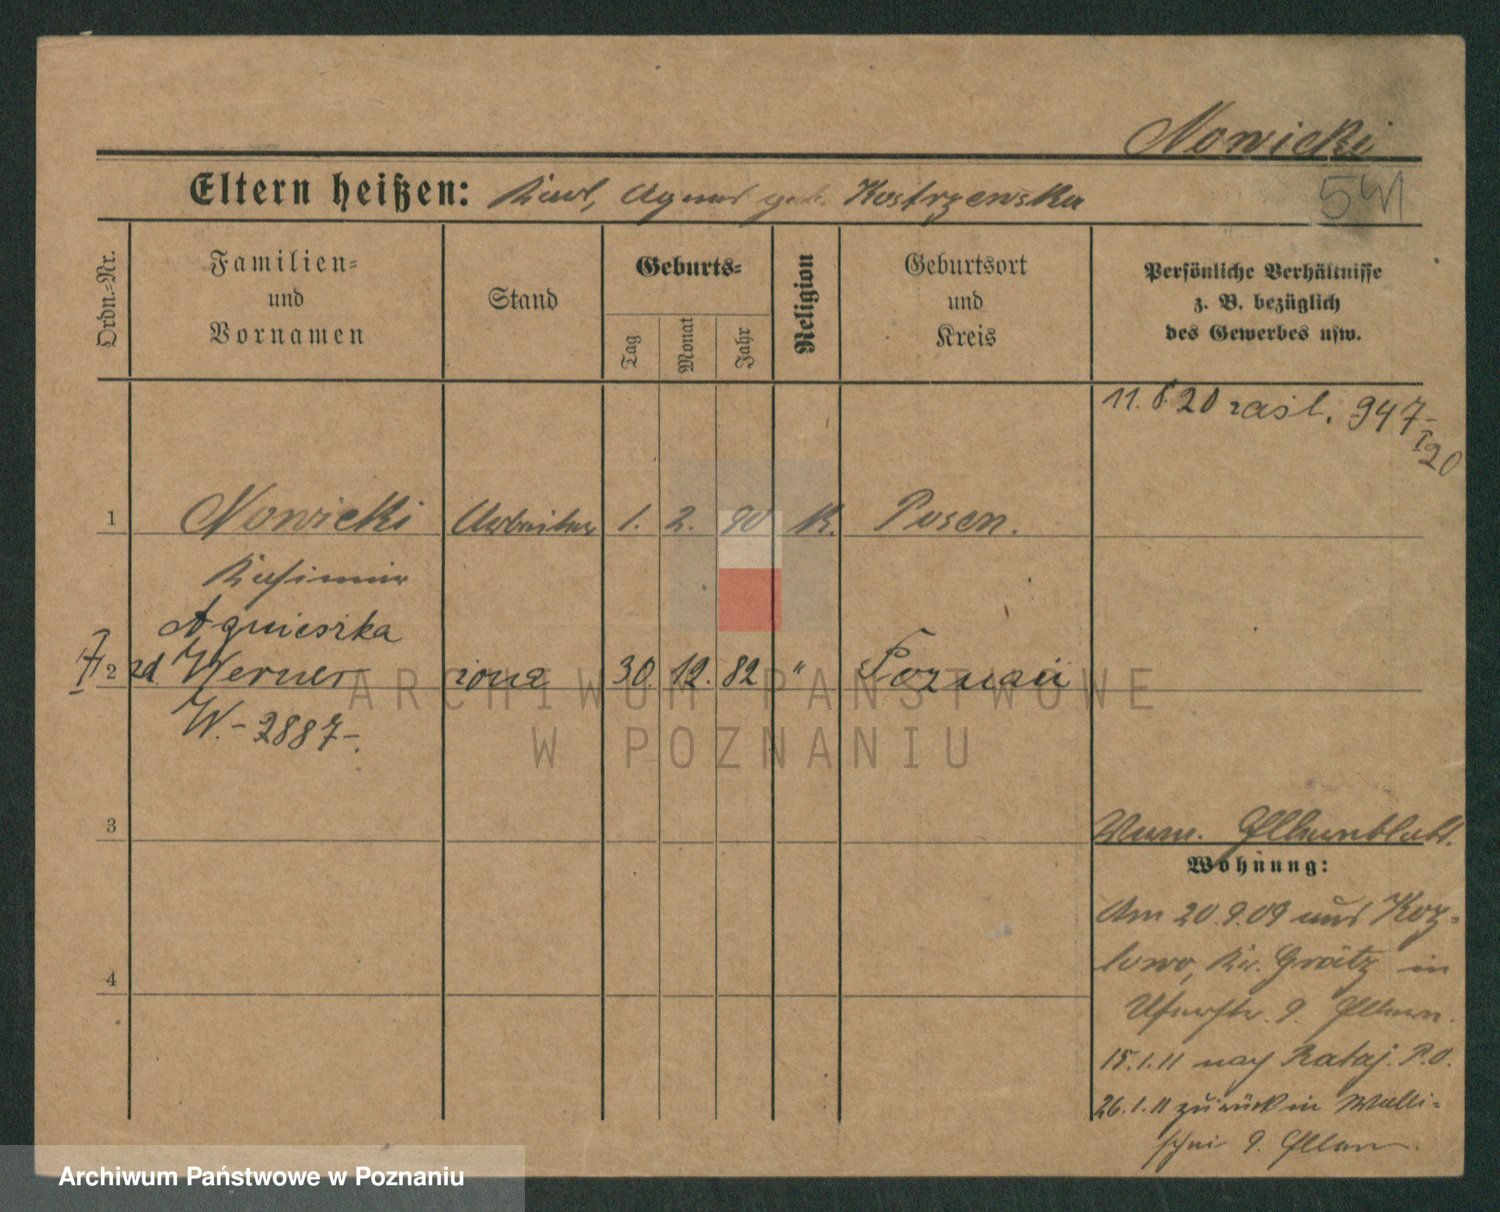 Nowicki
Eltern heißen: Karl, Agnes geb. Kostrzewska
541
Ordn.-Nr.
Familien-
und
Vornamen
Stand
Geburts-
Tag
Monat
Jahr
Religion
Geburtsort
und
Kreis
Persönliche Verhältnisse
z. B. bezüglich
des Gewerbes usw.
11. 8. 20 zasl. 947-
I 20
1 Nowicki Arbeiter 1. 2. 90 K. Posen.
Kasimir
Agnieszka
2 zd. Werner żona 30. 12. 82 " Poznań
W.-2887-.
3
Elternblatt.
Wohnung:
Am 20.9.09 aus Koz-
lowo, Kr. Grätz in
Uferstr. 9. Eltern.
15.1.11 nach Rataj. P.O.
26.1.11 zurück in Walli-
schei 9. Eltern.
4
ARCHIWUM PAŃSTWOWE
W POZNANIU
Archiwum Państwowe w Poznaniu